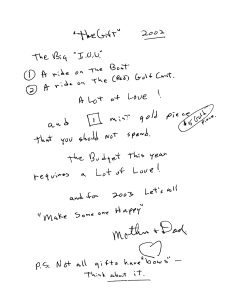 "The Gift" 2002
The Big "I.O.U."
① A ride on The Boat
② A ride on The (Red) Golf Cart.
A Lot of Love!
and 1 mint gold piece
that you should not spend.
The Budget This year
requires a Lot of Love!
and for 2003 Let's all
"Make Someone Happy"
Mother & Dad
P.S. Not all gifts have "bows" —
Think about it.